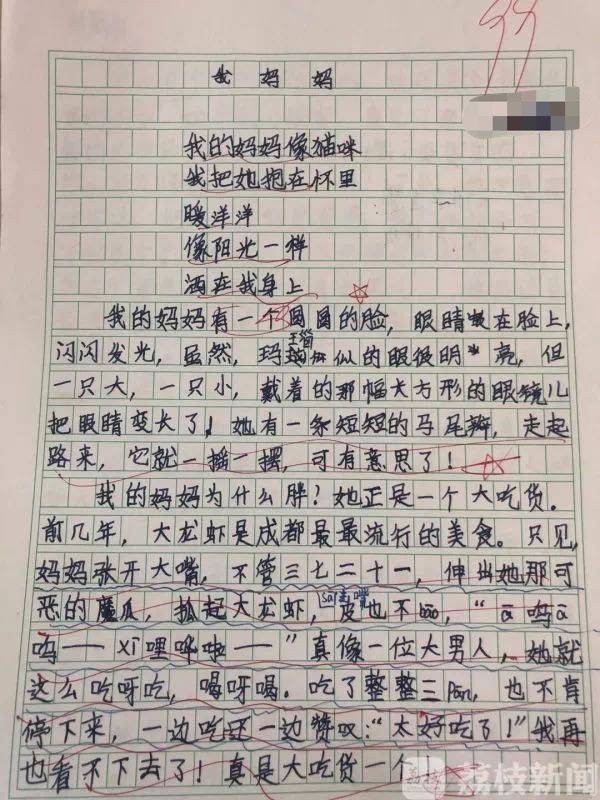 99
我妈妈
我的妈妈像猫咪
我把她抱在怀里
暖洋洋
像阳光一样
洒在我身上
我的妈妈有一个圆圆的脸，眼睛在脸上，
闪闪发光，虽然，玛瑙似的眼很明亮，但
一只大，一只小，戴着的那幅大方形的眼镜儿
把眼睛变长了！她有一条短短的马尾辫，走起
路来，它就一摇一摆，可有意思了！
我的妈妈为什么胖？她正是一个大吃货。
前几年，大龙虾是成都最最流行的美食。只见，
妈妈张开大嘴，不管三七二十一，伸出她那可
恶的魔爪，抓起大龙虾，皮也不bāo，“ā呜ā
呜——xī哩哗啦——”真像一位大男人，她就
这么吃呀吃，喝呀喝。吃了整整三pán，也不肯
停下来，一边吃还一边赞叹：“太好吃了！”我再
也看不下去了！真是大吃货一个
荔枝新闻